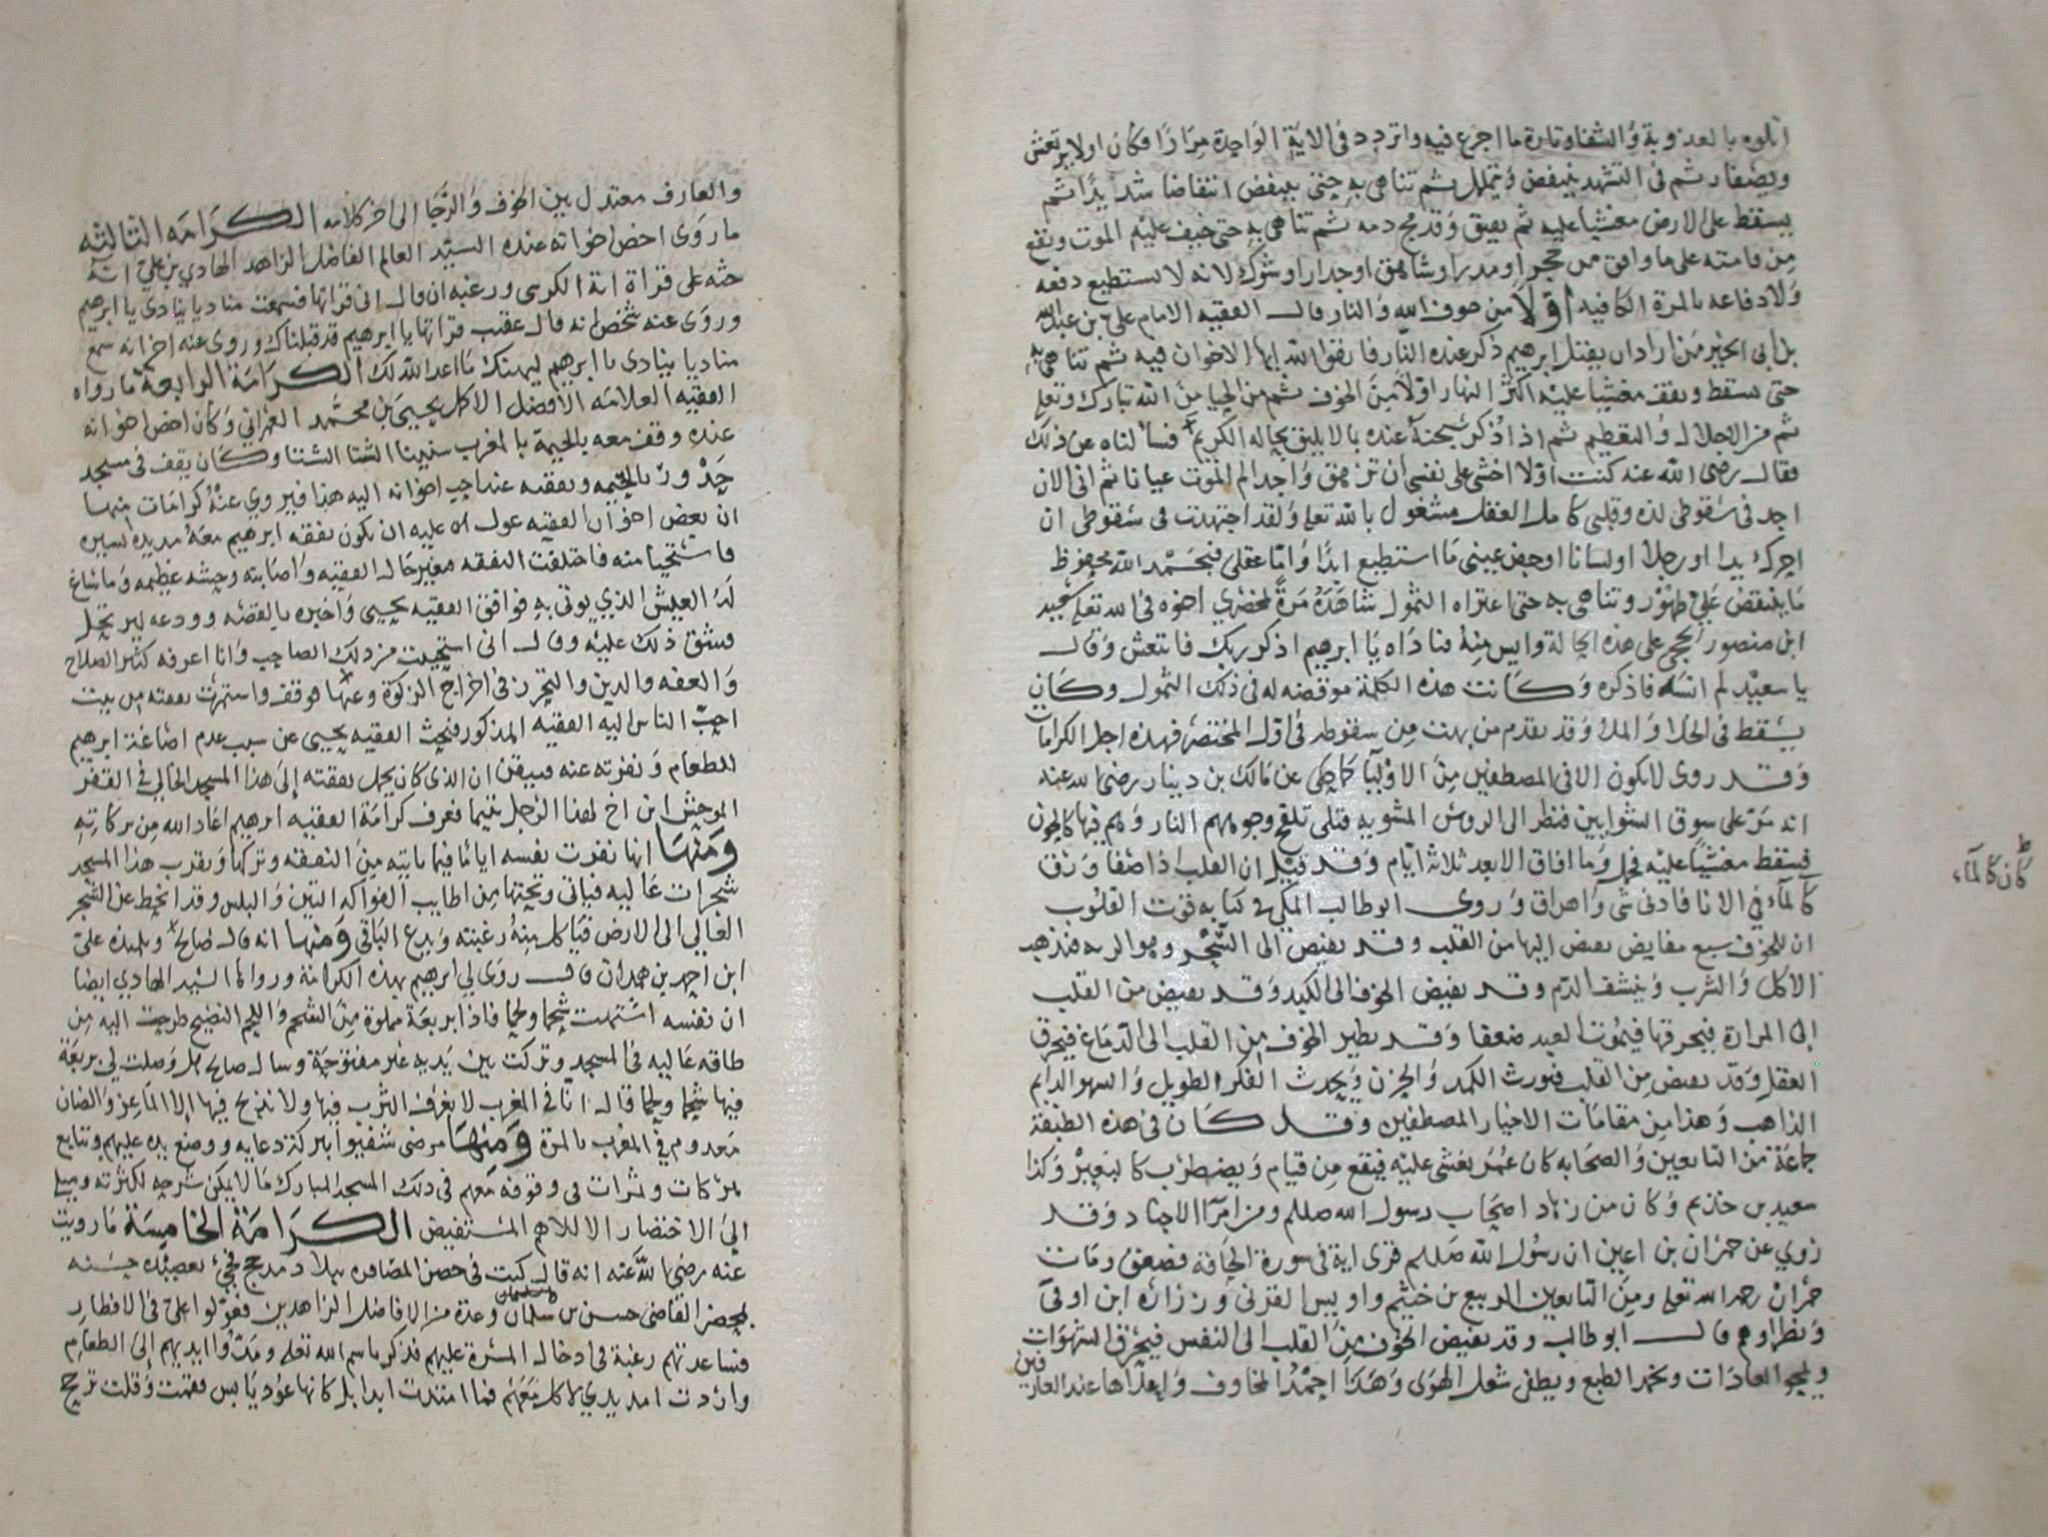 اتلوه بالعذوبة والشفا وتارة ما اجزع فيه واتردد فى الاية الواحدة مرارا فكان اولا يرتعش
ويصفار ثم فى التشهد ينتفض ويتململ ثم تناهى به حتى ينتفض انتفاضا شديدا ثم
يسقط على الارض مغشيا عليه ثم يفيق وقد مج دمه ثم تناهى به حتى خيف عليه الموت ويقع
من قامته على ما وافق من حجر او مدر او شاهق او جدار او شوك لانه لا يستطيع دفعه
ولا دفاعه بالمرة الكافيه اولا من خوف الله والنار قال الفقيه الامام على بن عبدالله
بن ابى الخير من اراد ان يقتل ابرهيم ذكر عنده النار فاتقوا الله ايها الاخوان فيه ثم تناهى به
حتى يسقط ويقف مغشيا عليه اكثر النهار اولا من الخوف ثم من الحيا من الله تبارك وتعلى
ثم من الاجلال والتعظيم ثم اذا ذكر سبحنه عنده بما لا يليق بجاله الكريم فسألناه عن ذلك
فقال رضى الله عنه كنت اولا اخشى على نفسى ان تزهق واجد الم الموت عيانا ثم انى الان
اجد فى سقوطى لذه وقلبى كامل العقل مشغول بالله تعلى ولقد اجتهدت فى سقوطى ان
احرك يدا او رجلا او لسانا او جفن عينى ما استطيع ابدا واما عقلى فبحمد الله محفوظ
ما ينتقض على طهور وتناهى به حتى اعتراه الثمول شاهده مرة بمحضري اخوه فى الله تعلى سعيد
ابن منصور الحجى على هذه الحالة وايس منه فناداه يا ابرهيم اذكر ربك فانتعش وقال
يا سعيد لم انسه فاذكره وكانت هذه الكلمة موقضه له فى ذلك الثمول وكان
يسقط فى الخلا والملا وقد تقدم من بهت من سقوطه فى اول المختصر فهذه اجل الكرامات
وقد روى لا يكون الا فى المصطفين من الاوليا كما حكى عن مالك بن دينار رضى الله عنه
انه مر على سوق الشوايين فنظر الى الروس المشويه فتلى تلفح وجوههم النار وهم فيها كالحون
فسقط مغشيا عليه فحمل وما افاق الا بعد ثلاثة ايام وقد قيل ان القلب اذا صفا ورق
كالماء في الانا فادنى شى واهراق وروى ابو طالب المكى فى كتابه قوت القلوب
ان للخوف سبع مفايض يفيض اليها من القلب وقد يفيض الى السحر وهو الريه فيذهب
الاكل والشرب وينشف الدم وقد يفيض الخوف الى الكبد وقد يفيض من القلب
الى المرارة فيحرقها فيموت العبد ضعفا وقد يطير الخوف من القلب الى الدماغ فيحرق
العقل وقد يفيض من القلب فيورث الكمد والحزن ويحدث الفكر الطويل والسهر الدايم
الذاهب وهذا من مقامات الاخيار المصطفين وقد كان فى هذه الطبقة
جماعة من التابعين والصحابه كان عمر يغشى عليه فيقع من قيام ويضطرب كالبعير وكذا
سعيد بن خذيم وكان من زهاد اصحاب رسول الله صللم ومن امرآ الاجناد وقد
روي عن حمران بن اعين ان رسول الله صللم قرى اية فى سورة الحاقة فصعق ومات
حمران رحمه الله تعلى ومن التابعين الربيع بن خثيم واويس القرنى وزرارة ابن اوفى
ونظراوهم قال ابو طالب وقد يفيض الخوف من القلب الى النفس فيحرق الشهوات
ويمحو العادات ويخمد الطبع ويطفى شعل الهوى وهذا احمد المخاوف واعلاها عند العارفين
كان كالماء
والعارف معتدل بين الخوف والرجا الى اخر كلامه الكرامه الثالثه
ما روى اخص اخوانه عنده السيد العالم الفاضل الزاهد الهادي بن على انه
حثه على قراة اية الكرسى ورغبه ان قال انى قراتها فسمعت مناديا ينادى يا ابرهيم
وروى عنه شخص انه قال عقيب قراتها يا ابرهيم قد قبلناك وروى عنه اخر انه سمع
مناديا ينادى يا ابرهيم ليهنك ما اعد الله لك الكرامة الرابعة ما رواه
الفقيه العلامه الافضل الاكل يحيى بن محمد العمراني وكان اخص اخوانه
عنده وقف معه بالخيمة بالمغرب سنينا الشتا الشتا وكان يقف فى مسجد
بالخيمه ونفقته عند احب اخوانه اليه هذا فيروي عنه كرامات منها
ان بعض اخوان الفقيه عول عليه ان يكون نفقه ابرهيم معه مديده يسيره
فاستحيا منه فاختلفت النفقه مغير حال الفقيه واصابته وحشه عظيمه وما ساغ
له العيش الذي يوتى به فوافق الفقيه يحيى واخبره بالقصه وودعه ليرتحل
فشق ذلك عليه وقال انى استحيت من ذلك الصاحب وانا اعرفه كثير الصلاح
والعفه والدين والتحرز فى اخراج الزكوة وعنها فوقف واستمرت نفقته من بيت
احب الناس اليه الفقيه المذكور فبحث الفقيه يحيى عن سبب عدم اضاغة ابرهيم
للطعام ونفرته عنه فتيقن ان الذى كان يحمل نفقته إلى هذا المسجد الخالي فى القفر
الموحش ابن اخ لهذا الرجل يتيما فعرف كرامة الفقيه ابرهيم اعاد الله من بركاته
ومنها انها نفرت نفسه اياما فيما ياتيه من النفقه وتركها وبقرب هذا المسجد
شجرات عاليه فياتى وتحتها من اطايب الفواكه التين والبلس وقد انحط عن الشجر
العالي الى الارض فياكل منه رغبته ويدع الباقى ومنها انه قال صالح وتلميذه على
ابن احمد بن همدان قال روى لي ابرهيم بهذه الكرامة وروالها السيد الهادي ايضا
ان نفسه اشتهت شحما ولحما فاذا بربعة مملوة من الشحم واللحم النضيج طرحت اليه من
طاقه عاليه فى المسجد وتركت بين يديه غير مفتوحة وسال صالح هل وصلت لي بربعة
فيها شحما ولحما قال انا في المغرب لا نعرف الترب فيها ولا نذبح فيها الا الماعز والضان
معدوم في المغرب بالمرة ومنها مرضى شفيوا ببركة دعايه ووضع يده عليهم وتتابع
بركات وثمرات فى وقوفه معهم فى ذلك المسجد المبارك ما لا يمكن شرحه لكثرته وميل
إلى الاختصار الا للاهم المستفيض الكرامة الخامسة ما رويت
عنه رضى الله عنه انه قال كنت فى حصن ببلاد مدحج فجئ بعصيده حسنه
بمحضر القاضى حسن بن سلمان سليمان وعدة من الافاضل الزاهدين فعولوا على فى الافطار
فساعدتهم رغبة فى ادخال المسرة عليهم فذكر باسم الله تعلى ومدوا ايديهم إلى الطعام
واردت امد يدي لاكل معهم فما امتدت ابدا بل كانها عود يابس فقمت وقلت ترجح